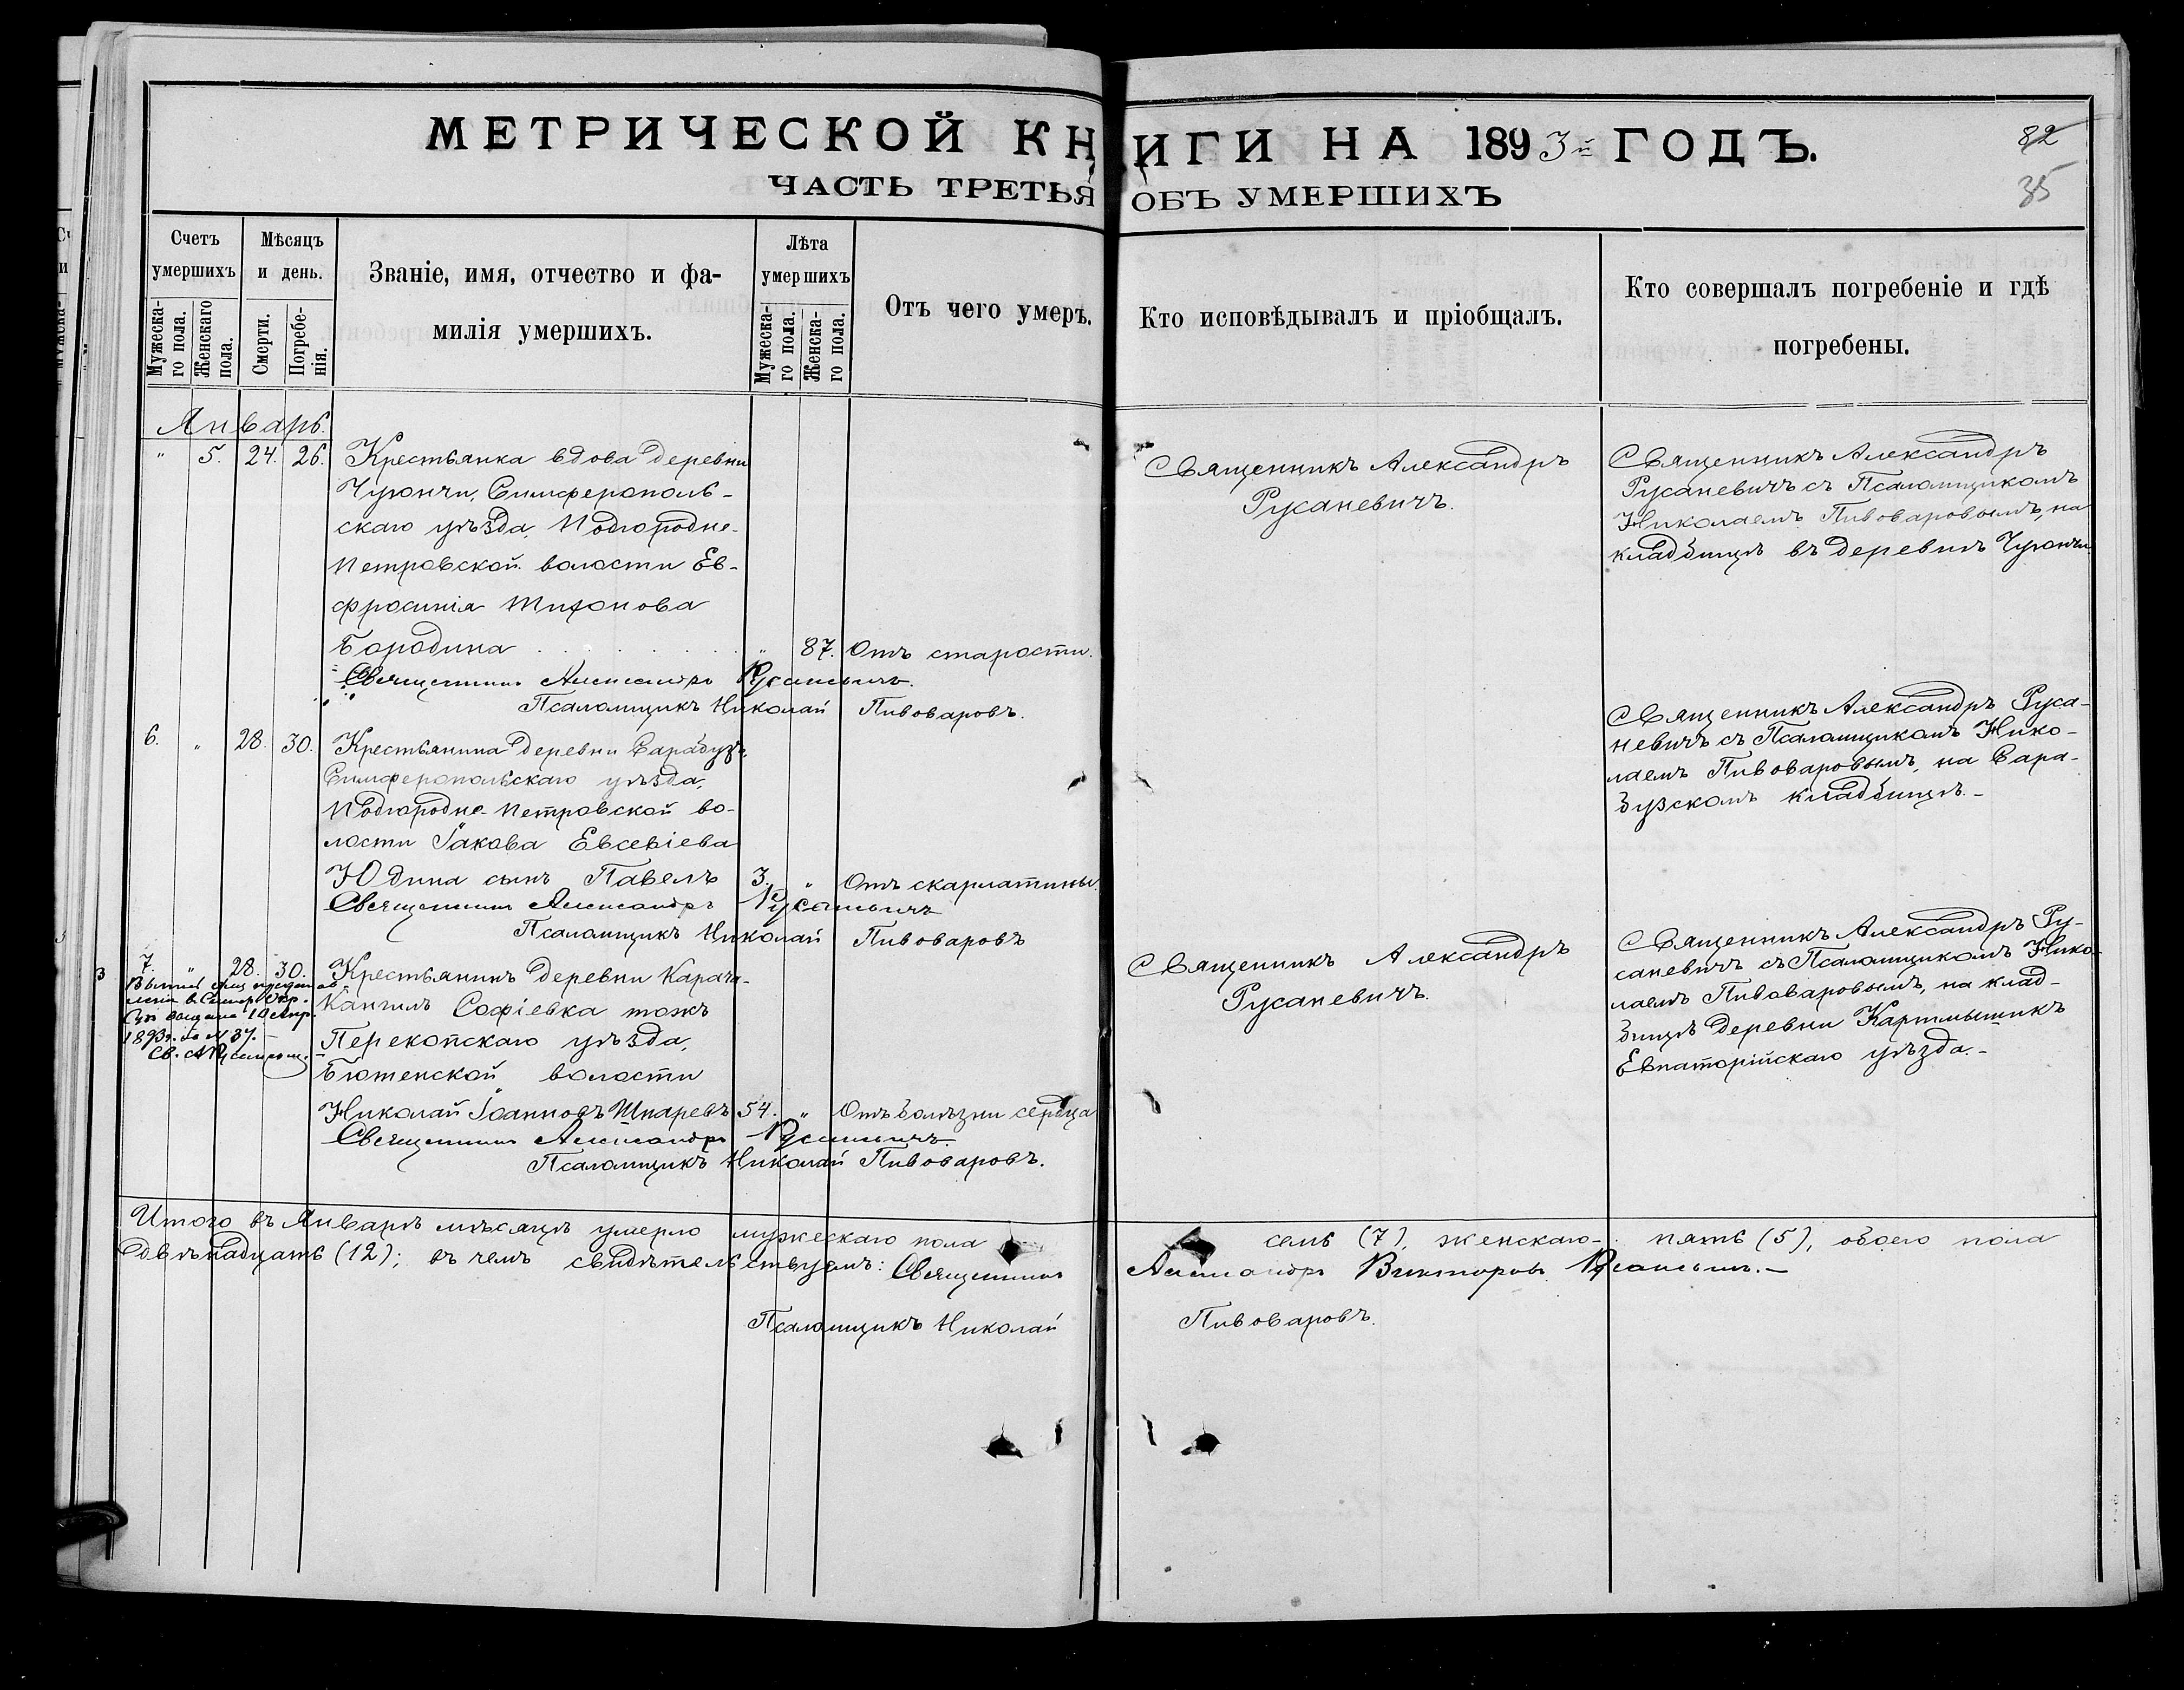 МЕТРИЧЕСКОЙ КНИГИ НА 1893й ГОДЪ.
82
ЧАСТЬ ТРЕТЬЯ ОБЪ УМЕРШИХЪ
35
Счетъ умершихъ
Мужеска-го пола.
Женскаго пола.
Мѣсяцъ и день.
Смерти.
Погребе-нія.
Званіе, имя, отчество и фа-
милія умершихъ.
Лѣта умершихъ
Мужеска-го пола.
Женска-го пола.
Отъ чего умеръ.
Кто исповѣдывалъ и пріобщалъ.
Кто совершалъ погребеніе и гдѣ
погребены.
Январь.
" 5. 24. 26. Крестьянка вдова деревни
Чуюнчи, Симферополь-
скаго уѣзда, Подгородне-
Петровской волости Ев-
фросинія Тифонова
Бородина " 87. Отъ старости.
Священникъ Александръ
Русаневичъ.
Священникъ Александръ
Русаневичъ съ Псаломщикомъ
Николаемъ Пивоваровымъ, на
кладбищѣ въ деревнѣ Чуюнчи.
Священникъ Александръ Русаневичъ.
Псаломщикъ Николай Пивоваровъ.
6. " 28. 30. Крестьянина деревни Сарабузъ,
Симферопольскаго уѣзда,
Подгородне-Петровской во-
лости Іакова Евсевіева
Юдина сынъ Павелъ 3. " Отъ скарлатины.
Священникъ Александръ Руса-
невичъ съ Псаломщикомъ Нико-
лаемъ Пивоваровымъ, на Сара-
бузскомъ кладбищѣ.-
Священникъ Александръ Русаневичъ
Псаломщикъ Николай Пивоваровъ
3 7. " 28. 30. Крестьянинъ деревни Карача-
Кангилъ Софіевка тожъ
Перекопскаго уѣзда,
Бютенской волости
Николай Іоанновъ Шпаревъ 54. " Отъ болѣзни сердца
1893г. за № 37.
Священникъ Александръ
Русаневичъ.
Священникъ Александръ Ру-
саневичъ съ Псаломщикомъ Нико-
лаемъ Пивоваровымъ, на клад-
бищѣ деревни Картмышикъ
Евпаторійскаго уѣзда.-
Священникъ Александръ Русаневичъ.
Псаломщикъ Николай Пивоваровъ.
Итого въ Январѣ мѣсяцѣ умерло мужескаго пола семь (7), женскаго - пять (5), обоего пола
двѣнадцать (12); въ чемъ свидѣтельствуемъ: Священникъ Александръ Викторовъ Русаневичъ.-
Псаломщикъ Николай Пивоваровъ.